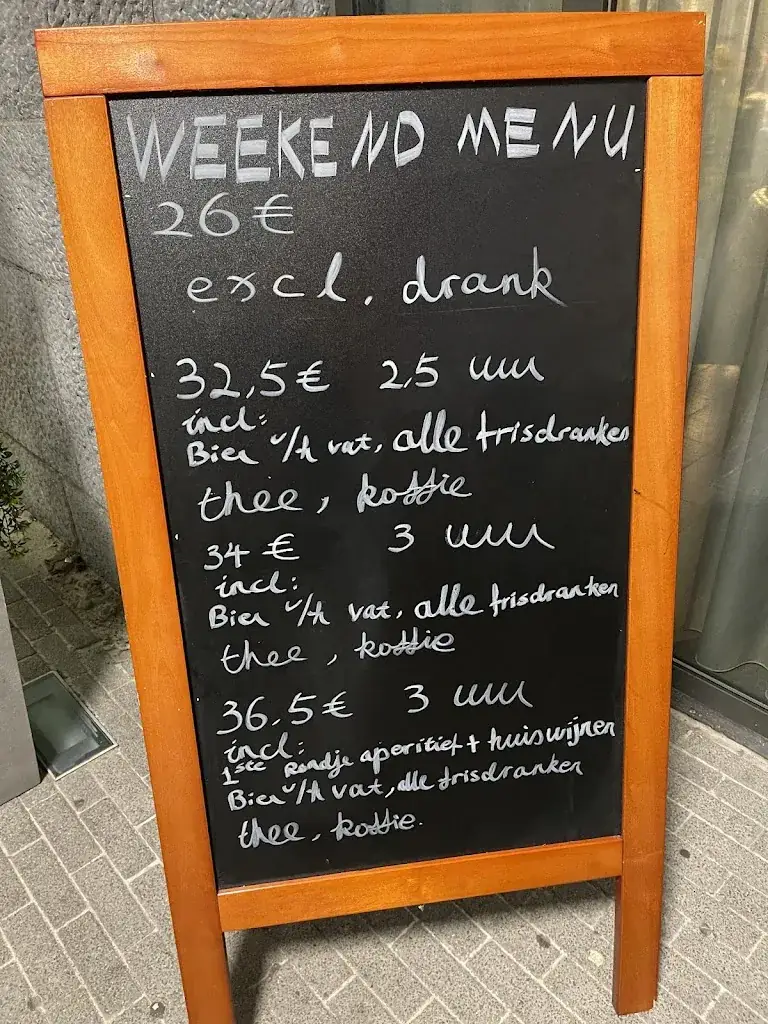 WEEKEND MENU
26€
excl. drank
32,5€ 2,5 uur
incl:
Bier v/h vat, alle frisdranken
thee, koffie
34 € 3 uur
incl:
Bier v/h vat, alle frisdranken
thee, koffie
36.5€ 3 uur
incl:
1ste Rondje aperitief + huiswijnen
Bier v/h vat, alle frisdranken
thee, koffie.